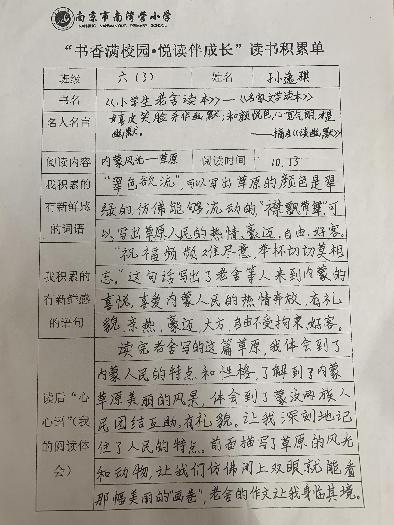 南京市南湾营小学
“书香满校园·悦读伴成长”读书积累单
班级 六（3） 姓名 孙逸祺
书名 《小学生老舍读本》—《名家文学读本》
名人名言 嬉皮笑脸并非幽默；和颜悦色，心宽气朗，才是
幽默。 ——摘自《谈幽默》
阅读内容 内蒙风光—草原 阅读时间 10.13
我积累的 “翠色欲流”，可以写出草原的颜色是翠
有新鲜感 绿的，仿佛能够流动的，“襟飘带舞”可
的词语 以写出草原人民的热情、豪迈、自由、好客。
“祝福频频难尽意，举杯切切莫相
我积累的 忘。”这句话写出了老舍等人来到内蒙的
有新鲜感 喜悦，喜爱内蒙人民的热情奔放、有礼
的语句 貌、亲热、豪迈、大方、自由不受拘束、好客。
读完老舍写的这篇草原，我体会到了
内蒙人民的特点和性格，了解到了内蒙
读后“心 草原美丽的风景，体会到了蒙汉两族人
心到”（我 民团结互助，有礼貌。让我深刻地记
的阅读体 住了人民的特点。前面描写了草原的风光
会） 和动物，让我们仿佛闭上双眼就能看
那幅美丽的“画卷”，老舍的作文让我身临其境。